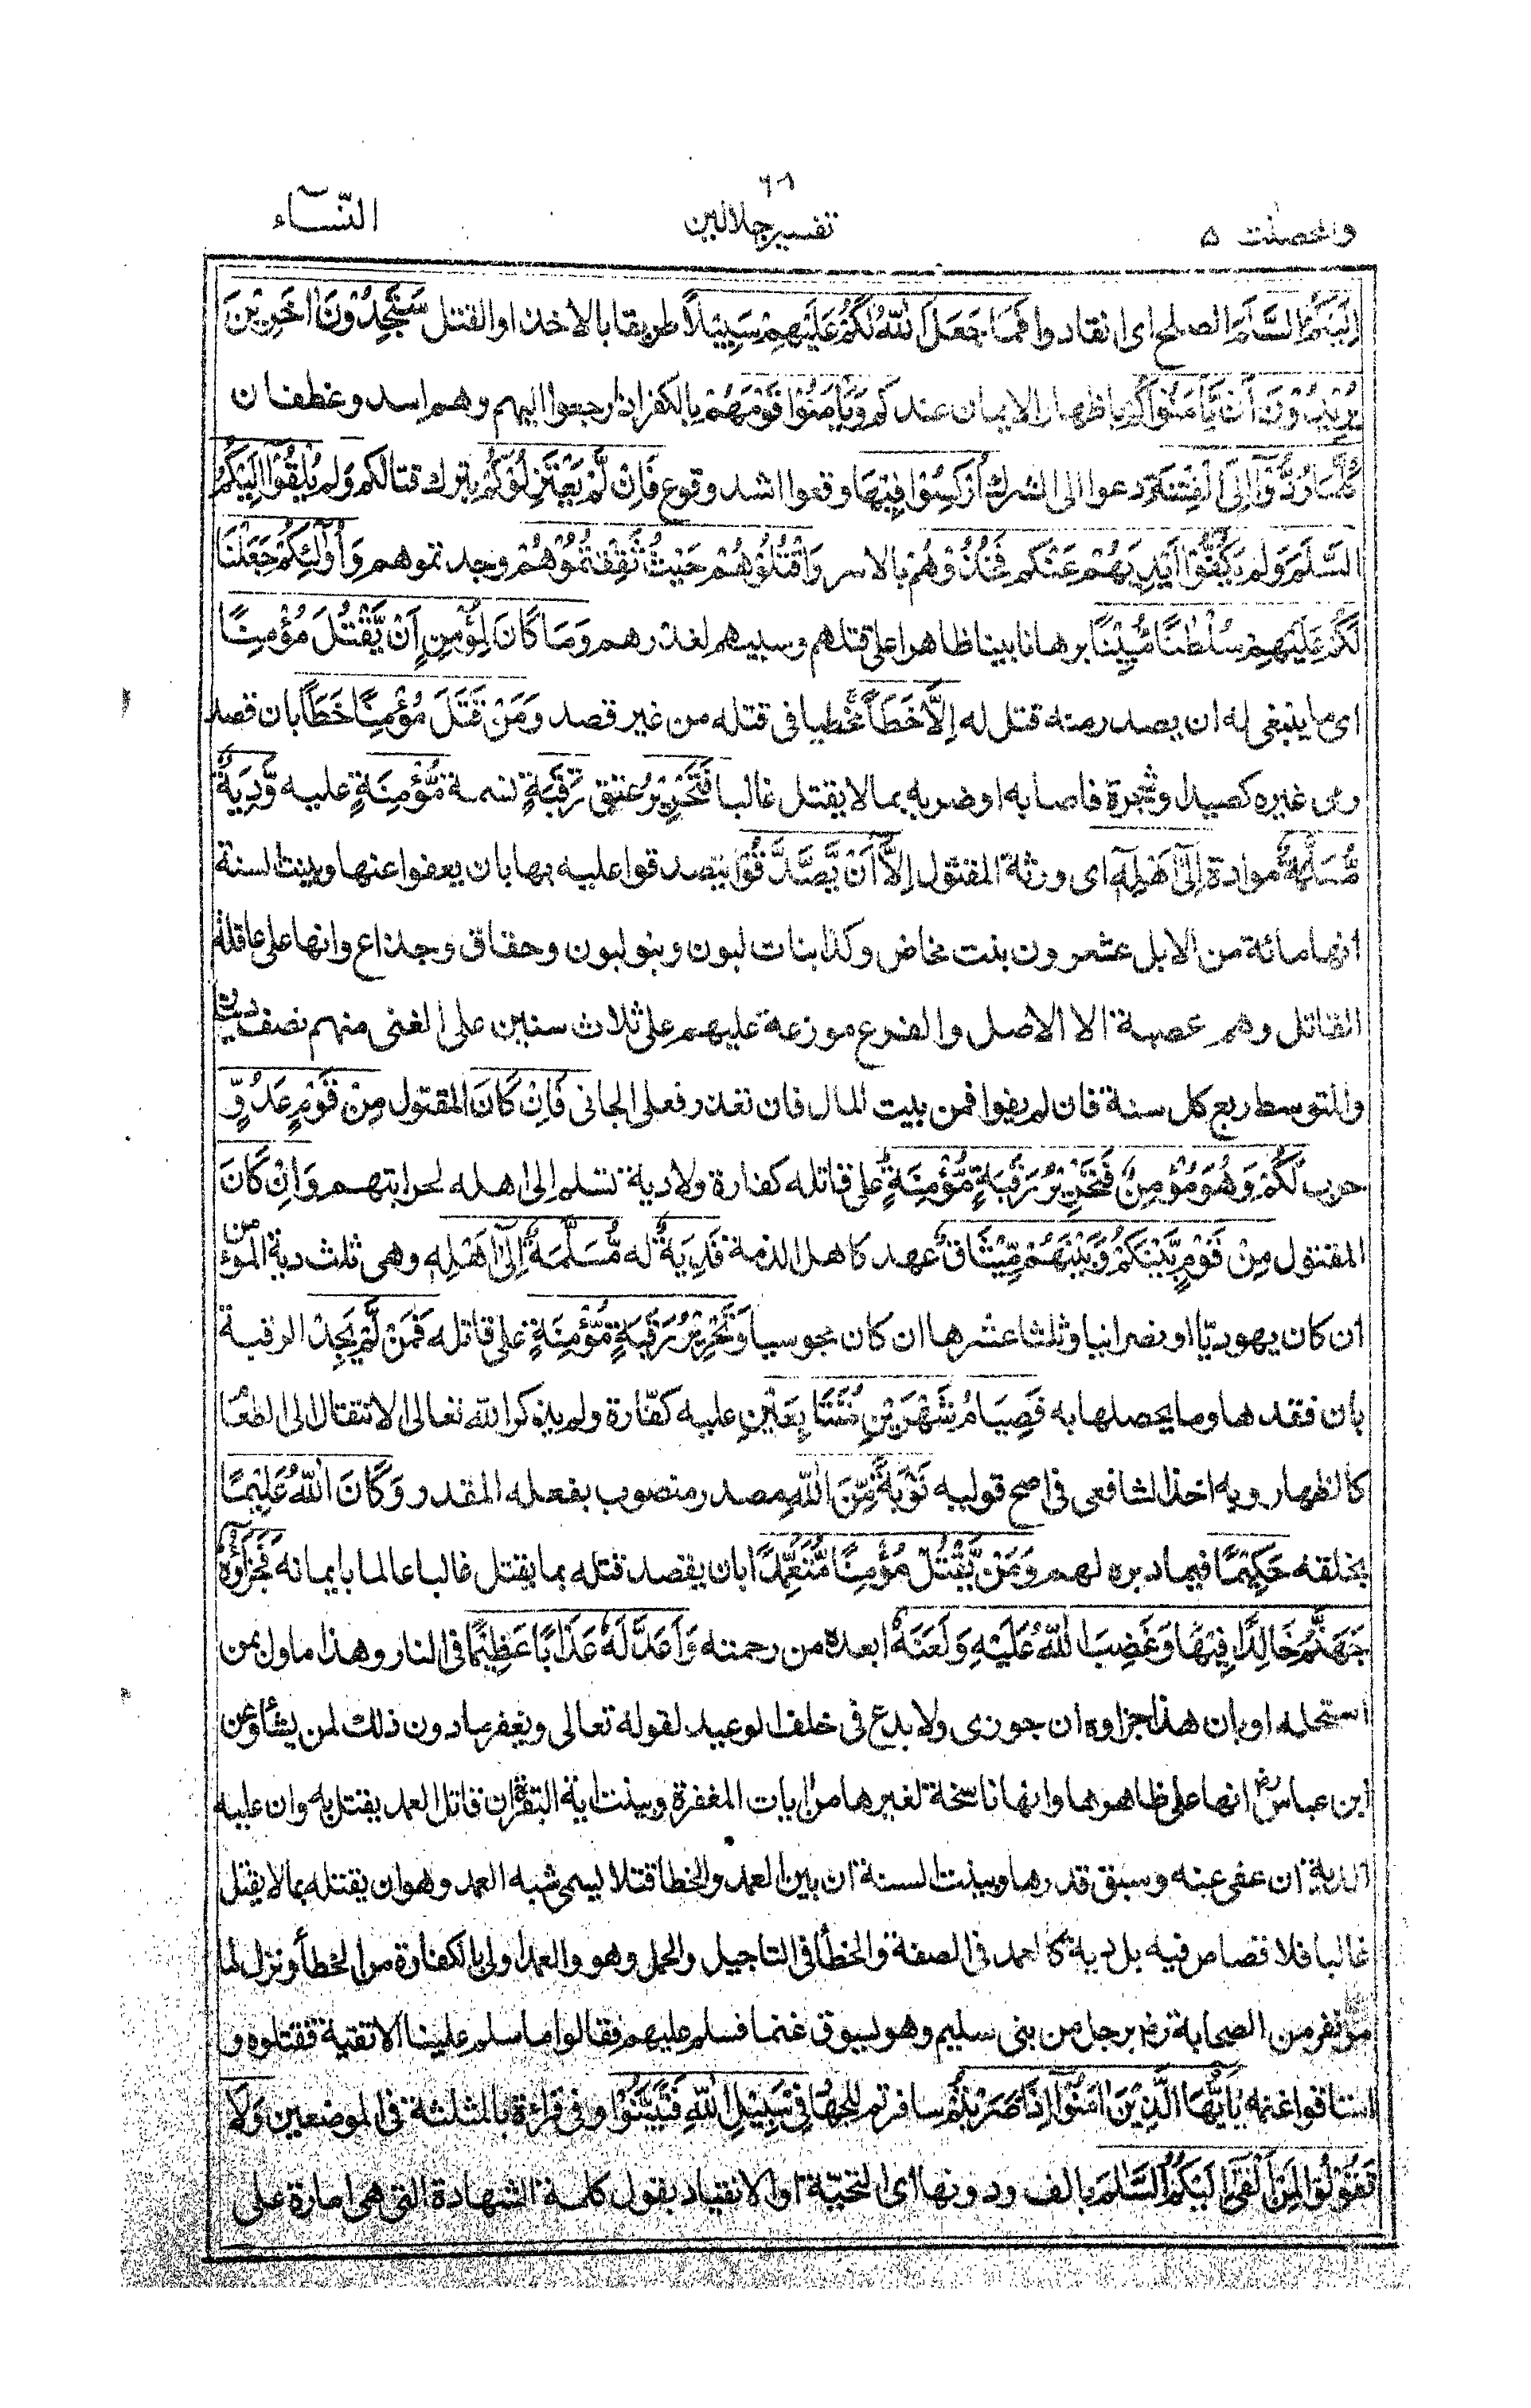 والمحصنت ۵
تفسير جلالين
النّسآء
اِلَيْكُمُ السَّلَمَ الصلح اى انقادوا فَمَا جَعَلَ اللّٰهُ لَكُمْ عَلَيْهِمْ سَبِيْلًا طريقا بالاخذ او القتل سَتَجِدُوْنَ اٰخَرِيْنَ
يُرِيْدُوْنَ اَنْ يَّاْمَنُوْكُمْ باظهار الايمان عندكم وَيَاْمَنُوْا قَوْمَهُمْ بالكفر اذا رجعوا اليهم وهم اسد وغطفان
كُلَّمَا رُدُّوْٓا اِلَى الْفِتْنَةِ دعوا الى الشرك اُرْكِسُوْا فِيْهَا وقعوا اشد وقوع فَاِنْ لَّمْ يَعْتَزِلُوْكُمْ بترك قتالكم وَلم يُلْقُوْٓا اِلَيْكُمُ
السَّلَمَ وَلم يَكُفُّوْٓا اَيْدِيَهُمْ عَنْكم فَخُذُوْهُمْ بالاسر وَاقْتُلُوْهُمْ حَيْثُ ثَقِفْتُمُوْهُمْ وجدتموهم وَاُولٰٓئِكُمْ جَعَلْنَا
لَكُمْ عَلَيْهِمْ سُلْطٰنًا مُّبِيْنًا برهانا بينا ظاهرا على قتلهم وسبيهم لغدرهم وَمَا كَانَ لِمُؤْمِنٍ اَنْ يَّقْتُلَ مُؤْمِنًا
اى ما ينبغى له ان يصدر منه قتل له اِلَّا خَطَأً مخطيا فى قتله من غير قصد وَمَنْ قَتَلَ مُؤْمِنًا خَطَأً بان قصد
رمى غيره كصيد وشجرة فاصابه او ضربه بمالا يقتل غالبا فَتَحْرِيْرُ عتق رَقَبَةٍ نسمة مُّؤْمِنَةٍ عليه وَّدِيَةٌ
مُّسَلَّمَةٌ موادة اِلٰٓى اَهْلِهٖٓ اى ورثة المقتول اِلَّآ اَنْ يَّصَّدَّقُوْا يتصدقوا عليه بها بان يعفوا عنها وبينت السنة
انها مائة من الابل عشرون بنت مخاض وكذا بنات لبون وبنو لبون وحقاق وجذاع وانها على عاقلة
القاتل وهم عصبة الا الاصل والفرع موزعة عليهم على ثلاث سنين على الغنى منهم نصف دينار
والمتوسط ربع كل سنة فان لم يفوا فمن بيت المال فان تعذر فعلى الجانى فَاِنْ كَانَ المقتول مِنْ قَوْمٍ عَدُوٍّ
حرب لَّكُمْ وَهُوَ مُؤْمِنٌ فَتَحْرِيْرُ رَقَبَةٍ مُّؤْمِنَةٍ على قاتله كفارة ولا دية تسلم الى اهله لحرابتهم وَاِنْ كَانَ
المقتول مِنْ قَوْمٍ بَيْنَكُمْ وَبَيْنَهُمْ مِّيْثَاقٌ عهد كاهل الذمة فَدِيَةٌ له مُّسَلَّمَةٌ اِلٰٓى اَهْلِهٖ وهى ثلث دية المؤمن
ان كان يهوديّا او نصرانيا وثلثا عشرها ان كان مجوسيا وَتَحْرِيْرُ رَقَبَةٍ مُّؤْمِنَةٍ على قاتله فَمَنْ لَّمْ يَجِدْ الرقبة
بان فقدها وما يحصلها به فَصِيَامُ شَهْرَيْنِ مُتَتَابِعَيْنِ عليه كفّارة ولم يذكر الله تعالى الانتقال الى الطعام
كالظهار وبه اخذ الشافعى فى اصح قوليه تَوْبَةً مِّنَ اللّٰهِ مصدر منصوب بفعله المقدر وَكَانَ اللّٰهُ عَلِيْمًا
بخلقه حَكِيْمًا فيما دبره لهم وَمَنْ يَّقْتُلْ مُؤْمِنًا مُّتَعَمِّدًا بان يقصد قتله بما يقتل غالبا عالما بايمانه فَجَزَآؤُهٗ
جَهَنَّمُ خَالِدًا فِيْهَا وَغَضِبَ اللّٰهُ عَلَيْهِ وَلَعَنَهٗ ابعده من رحمته وَاَعَدَّ لَهٗ عَذَابًا عَظِيْمًا فى النار وهذا ماول بمن
استحله او بان هذا جزاوه ان جوزى ولا بدع فى خلف الوعيد لقوله تعالى ويغفر مادون ذلك لمن يشاء وعن
ابن عباسؓ انها على ظاهرها وانها ناسخة لغيرها من ايات المغفرة وبينت اية البقرة ان قاتل العمد يقتل به وان عليه
الدية ان عفى عنه وسبق قدرها وبينت السنة ان بين العمد والخطأ قتلا يسمى شبه العمد وهو ان يقتله بما لا يقتل
غالبا فلا قصاص فيه بل دية كالعمد فى الصفة والخطأ فى التاجيل والحمل وهو والعمد اولى بالكفارة من الخطأ ونزل لما
مر نفر من الصحابة رض برجل من بنى سليم وهو يسوق غنما فسلم عليهم فقالوا ما سلم علينا الا تقية فقتلوه و
استاقوا غنمه يٰٓاَيُّهَا الَّذِيْنَ اٰمَنُوْٓا اِذَا ضَرَبْتُمْ سافرتم للجهاد فِيْ سَبِيْلِ اللّٰهِ فَتَبَيَّنُوْا وفى قراءة بالمثلثة فى الموضعين وَلَا
تَقُوْلُوْا لِمَنْ اَلْقٰٓى اِلَيْكُمُ السَّلٰمَ بالف ودونها اى التحيّة او الانقياد بقول كلمة الشهادة التى هى امارة على